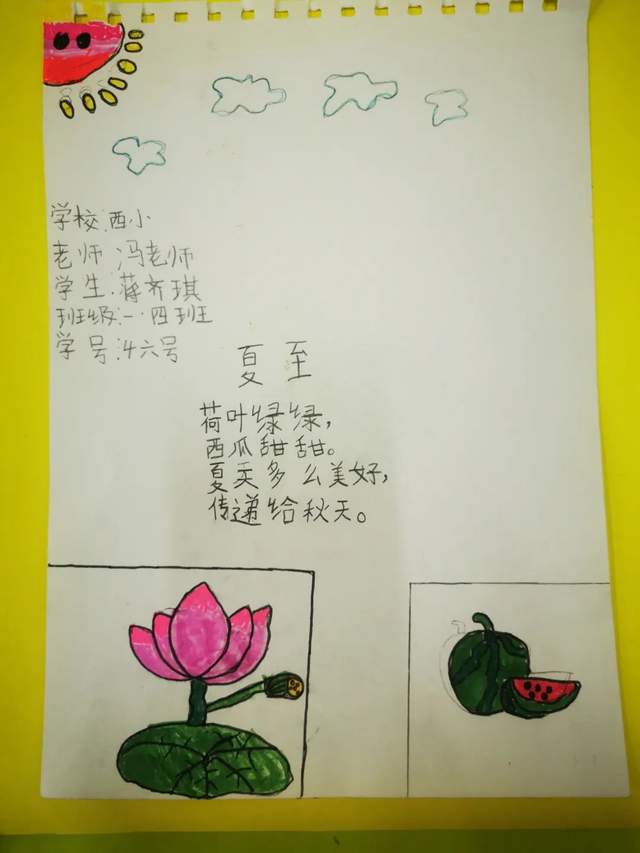 学校:西小
老师:冯老师
学生:蒋齐琪
班级:一·四班
学号:46号
夏至
荷叶绿绿,
西瓜甜甜。
夏天多么美好,
传递给秋天。